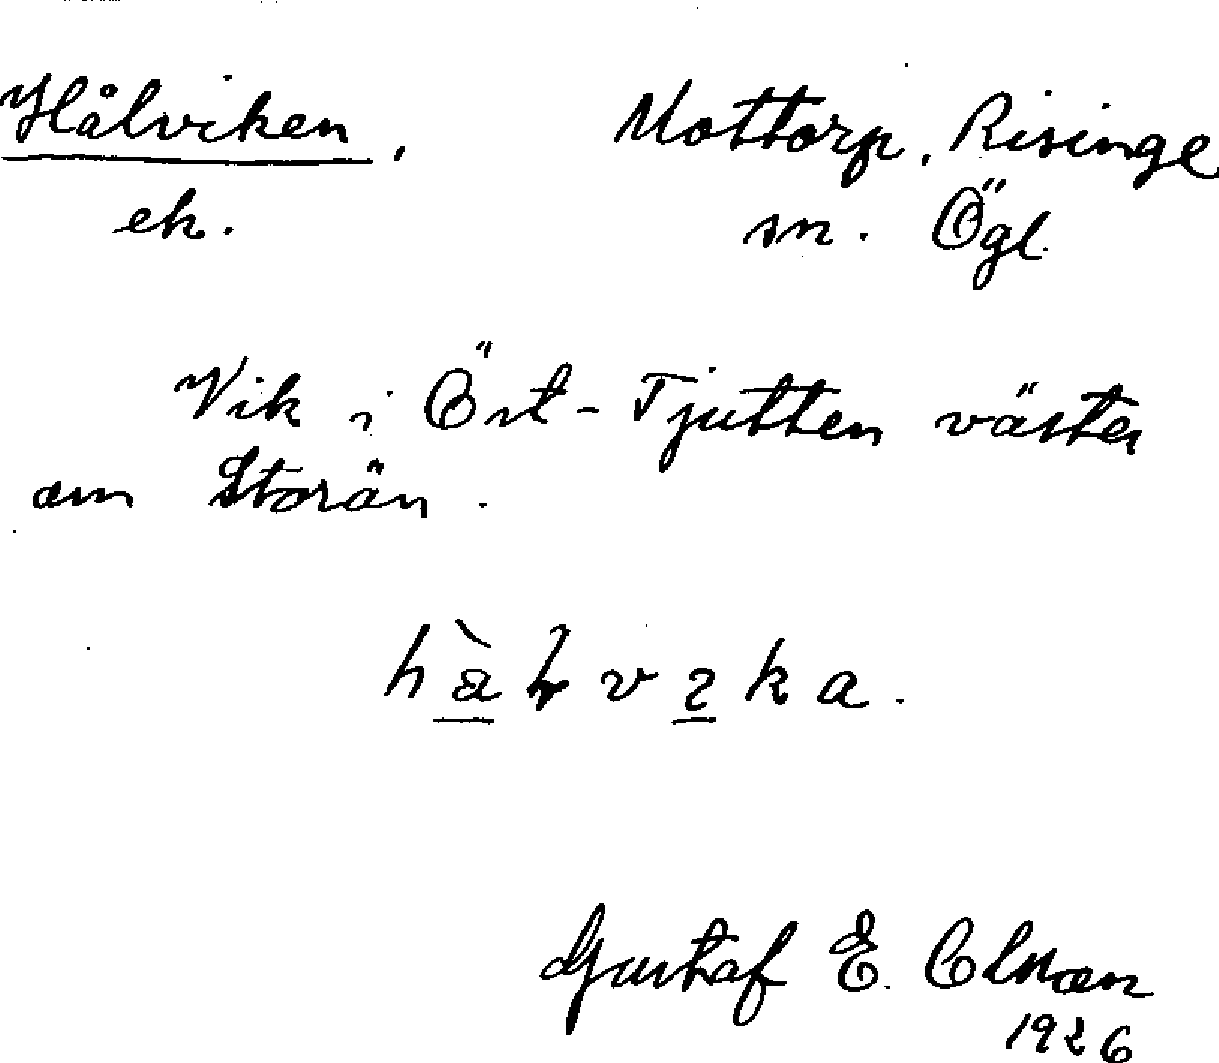 Hålviken, Mottorp, Risinge
ek. sn. Ögl.
Vik i Öst-Tjutten väster
om Storön.
Gustaf E. Olman
1926